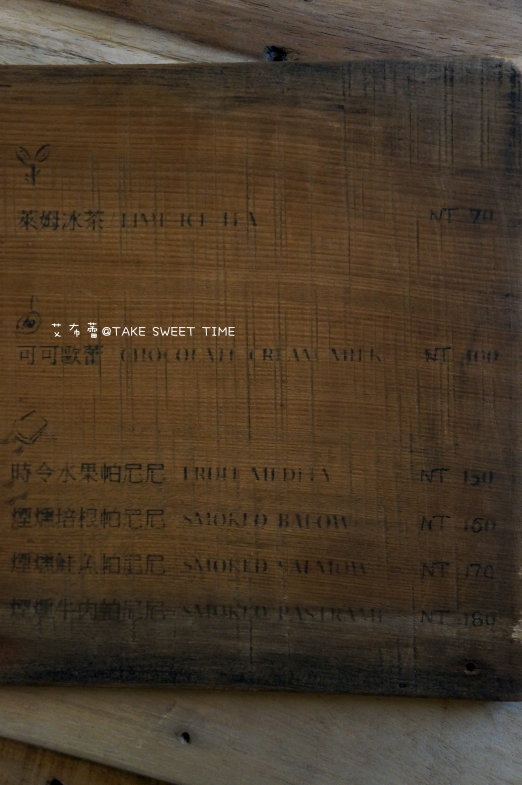 萊姆冰茶 LIME ICE TEA NT 70
艾布蕾@TAKE SWEET TIME
可可歐蕾 CHOCOLATE CREAM MILK NT 100
時令水果帕尼尼 FRUIT MEDLEY NT 150
煙燻培根帕尼尼 SMOKED BACON NT 160
煙燻鮭魚帕尼尼 SMOKED SALMON NT 170
煙燻牛肉帕尼尼 SMOKED PASTRAMI NT 180